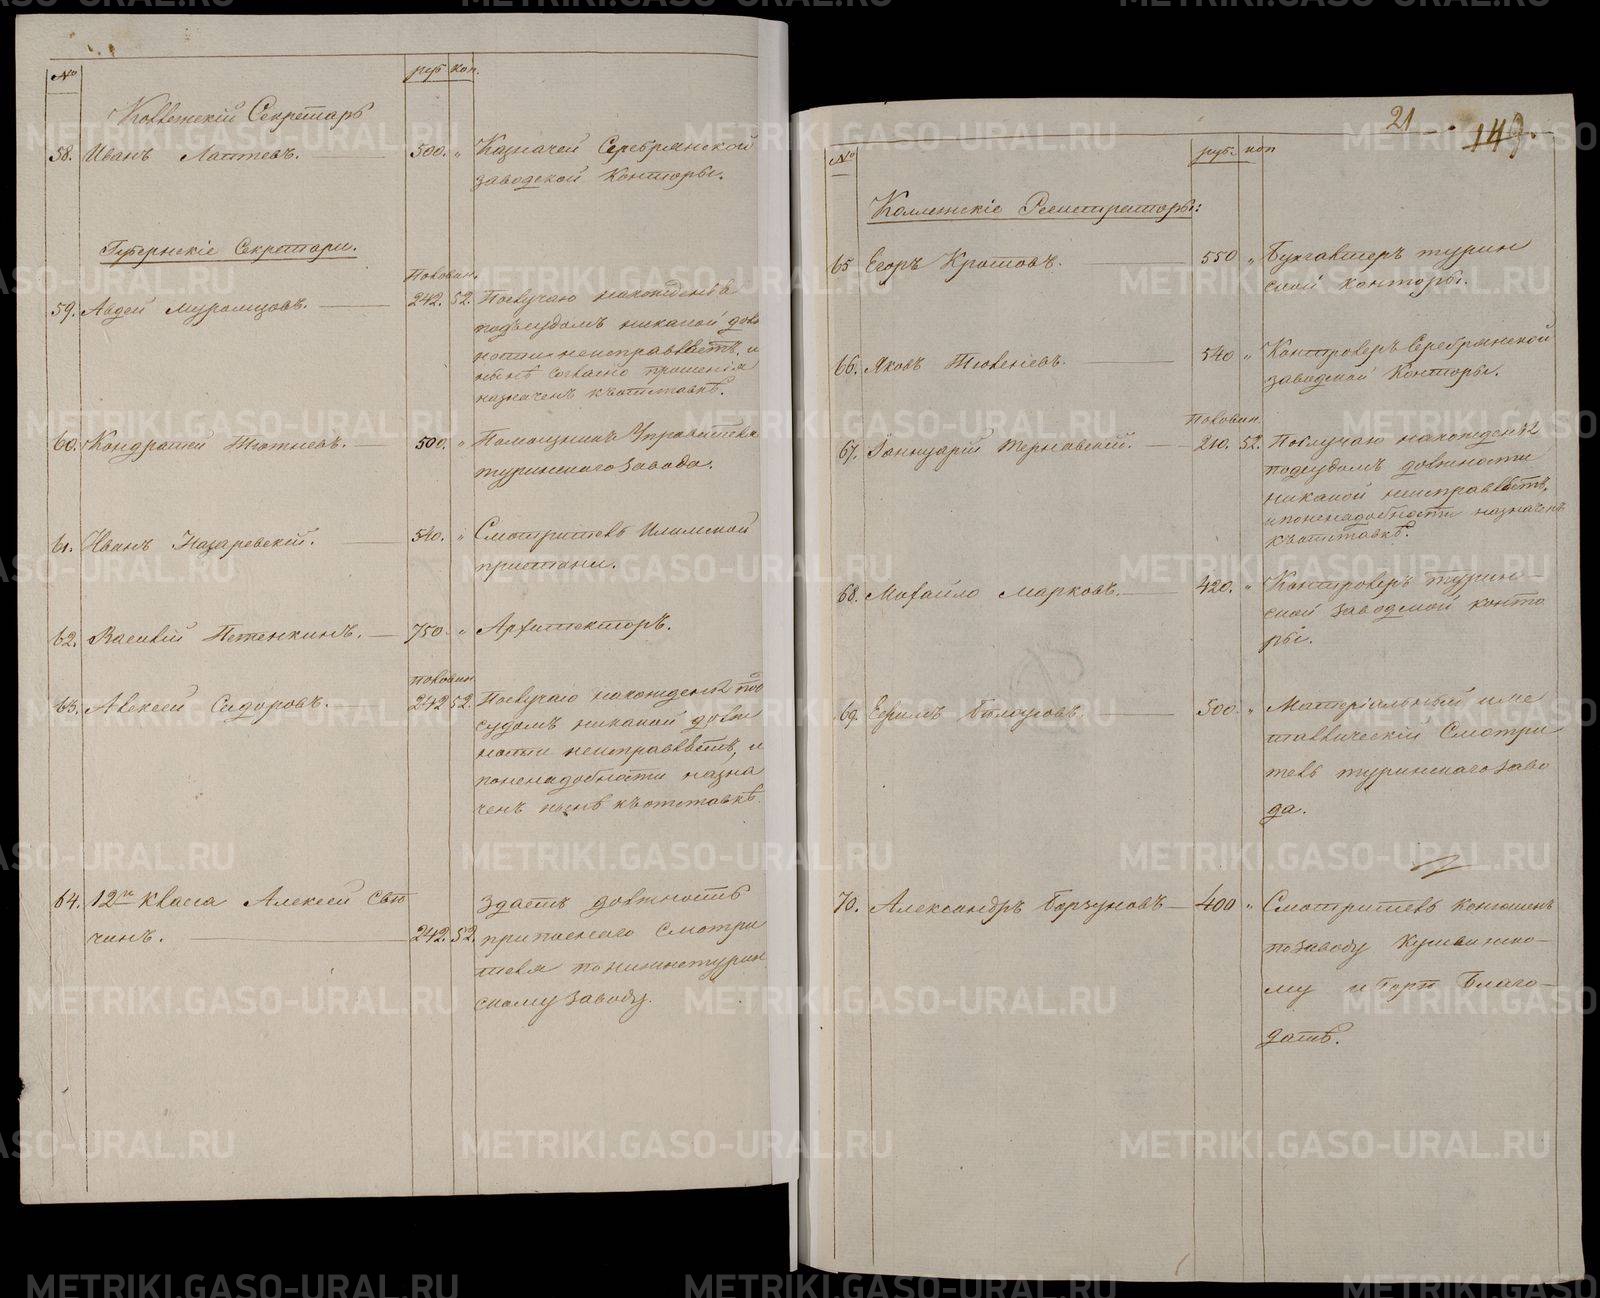 № руб коп.
Коллежскій Секретарь
58. Иванъ Лаптевъ. 500. „ Казначей Серебрянской
заводской Конторы.
Губернскіе Секретари.
Половин.
59. Авдей Муромцовъ. 242. 52. Послучаю нахожденія
подъсудомъ никакой долж
ности неисправляетъ, и
нынѣ согласно прошенія
назначенъ къотставкѣ.
60. Кондратей Тютневъ. 500. „ Помощникъ Управителя
туринскаго завода.
61. Иванъ Назаревскій. 540. „ Смотритель Илимской
пристани.
62. Василій Петенкинъ. 750. „ Архитекторъ.
половин
63. Алексей Сидоровъ. 242 52. Послучаю нахожденія под
судомъ никакой долж
ности неисправляетъ, и
поненадобности назна
ченъ нынѣ къотставкѣ.
64. 12го класа Алексей Свѣ
чинъ. 242. 52. Здаетъ должность
припаснаго Смотри
теля понижнетурин
скому заводу.
21 149.
№ руб. коп
Коллежскіе Регистраторы:
65 Егоръ Кротовъ. 550 „ Бухгалтеръ турин
ской конторы.
66. Яковъ Тювеневъ. 540 „ Контролеръ Серебрянской
заводской Конторы.
Половин.
67. Іаннуарій Терновскій. 210. 52. Послучаю нахожденія
подсудомъ должности
никакой неисправляетъ,
и поненадобности назначенъ
къотставкѣ.
68. Михайло Марковъ. 420. „ Контролеръ турин-
ской заводской конто
ры.
69. Ефимъ Бѣлоусовъ. 500. „ Матеріальный и ме
таллическій Смотри
тель туринскаго заво
да.
70. Александръ Борзуновъ 400 „ Смотритель конюшенъ
позаводу Кушвинско-
му и Горѣ Благо-
дать.